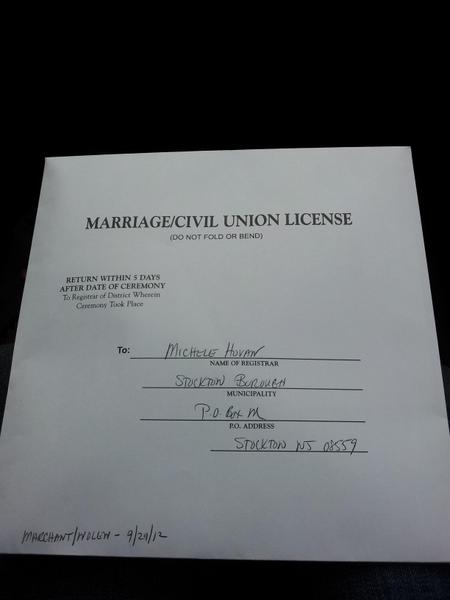 MARRIAGE/CIVIL UNION LICENSE
(DO NOT FOLD OR BEND)
RETURN WITHIN 5 DAYS
AFTER DATE OF CEREMONY
To Registrar of District Wherein
Ceremony Took Place
To: MICHELE HOVAN
NAME OF REGISTRAR
STOCKTON BOROUGH
MUNICIPALITY
P.O. BOX M
P.O. ADDRESS
STOCKTON NJ 08559
MARCHANT/WOLEN - 9/29/12